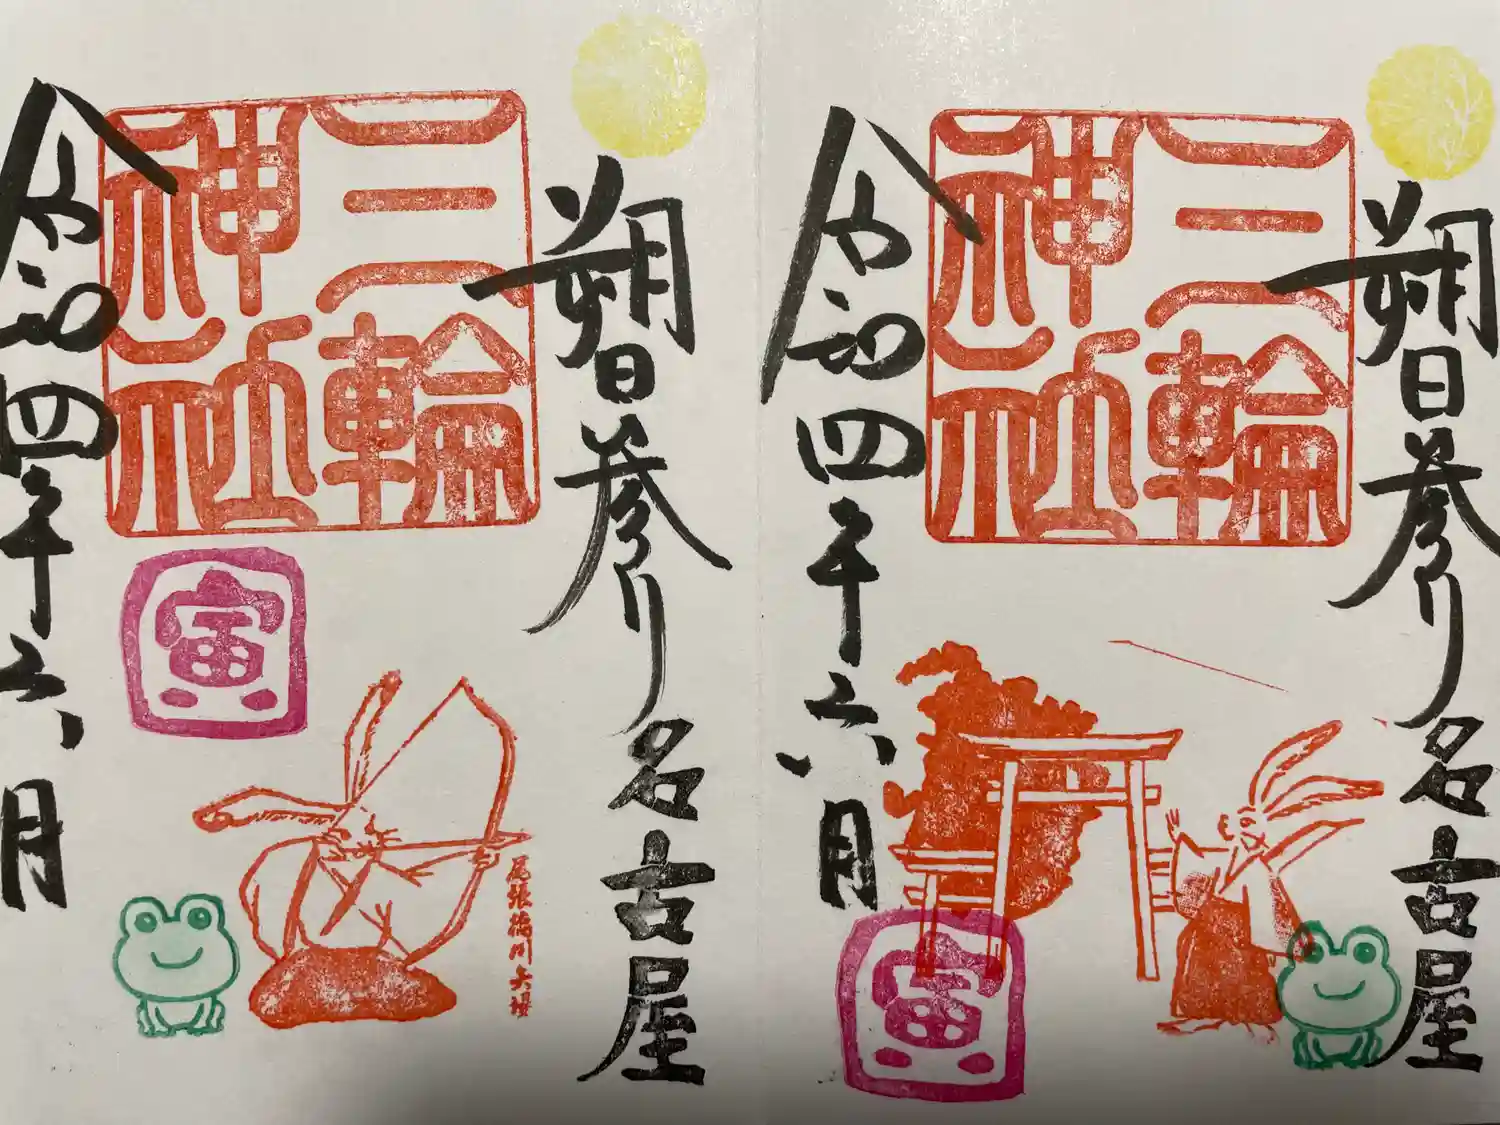 朔日参り名古屋
三輪
神社
寅
尾張徳川矢場
令和四年六月
朔日参り名古屋
三輪
神社
寅
令和四年六月